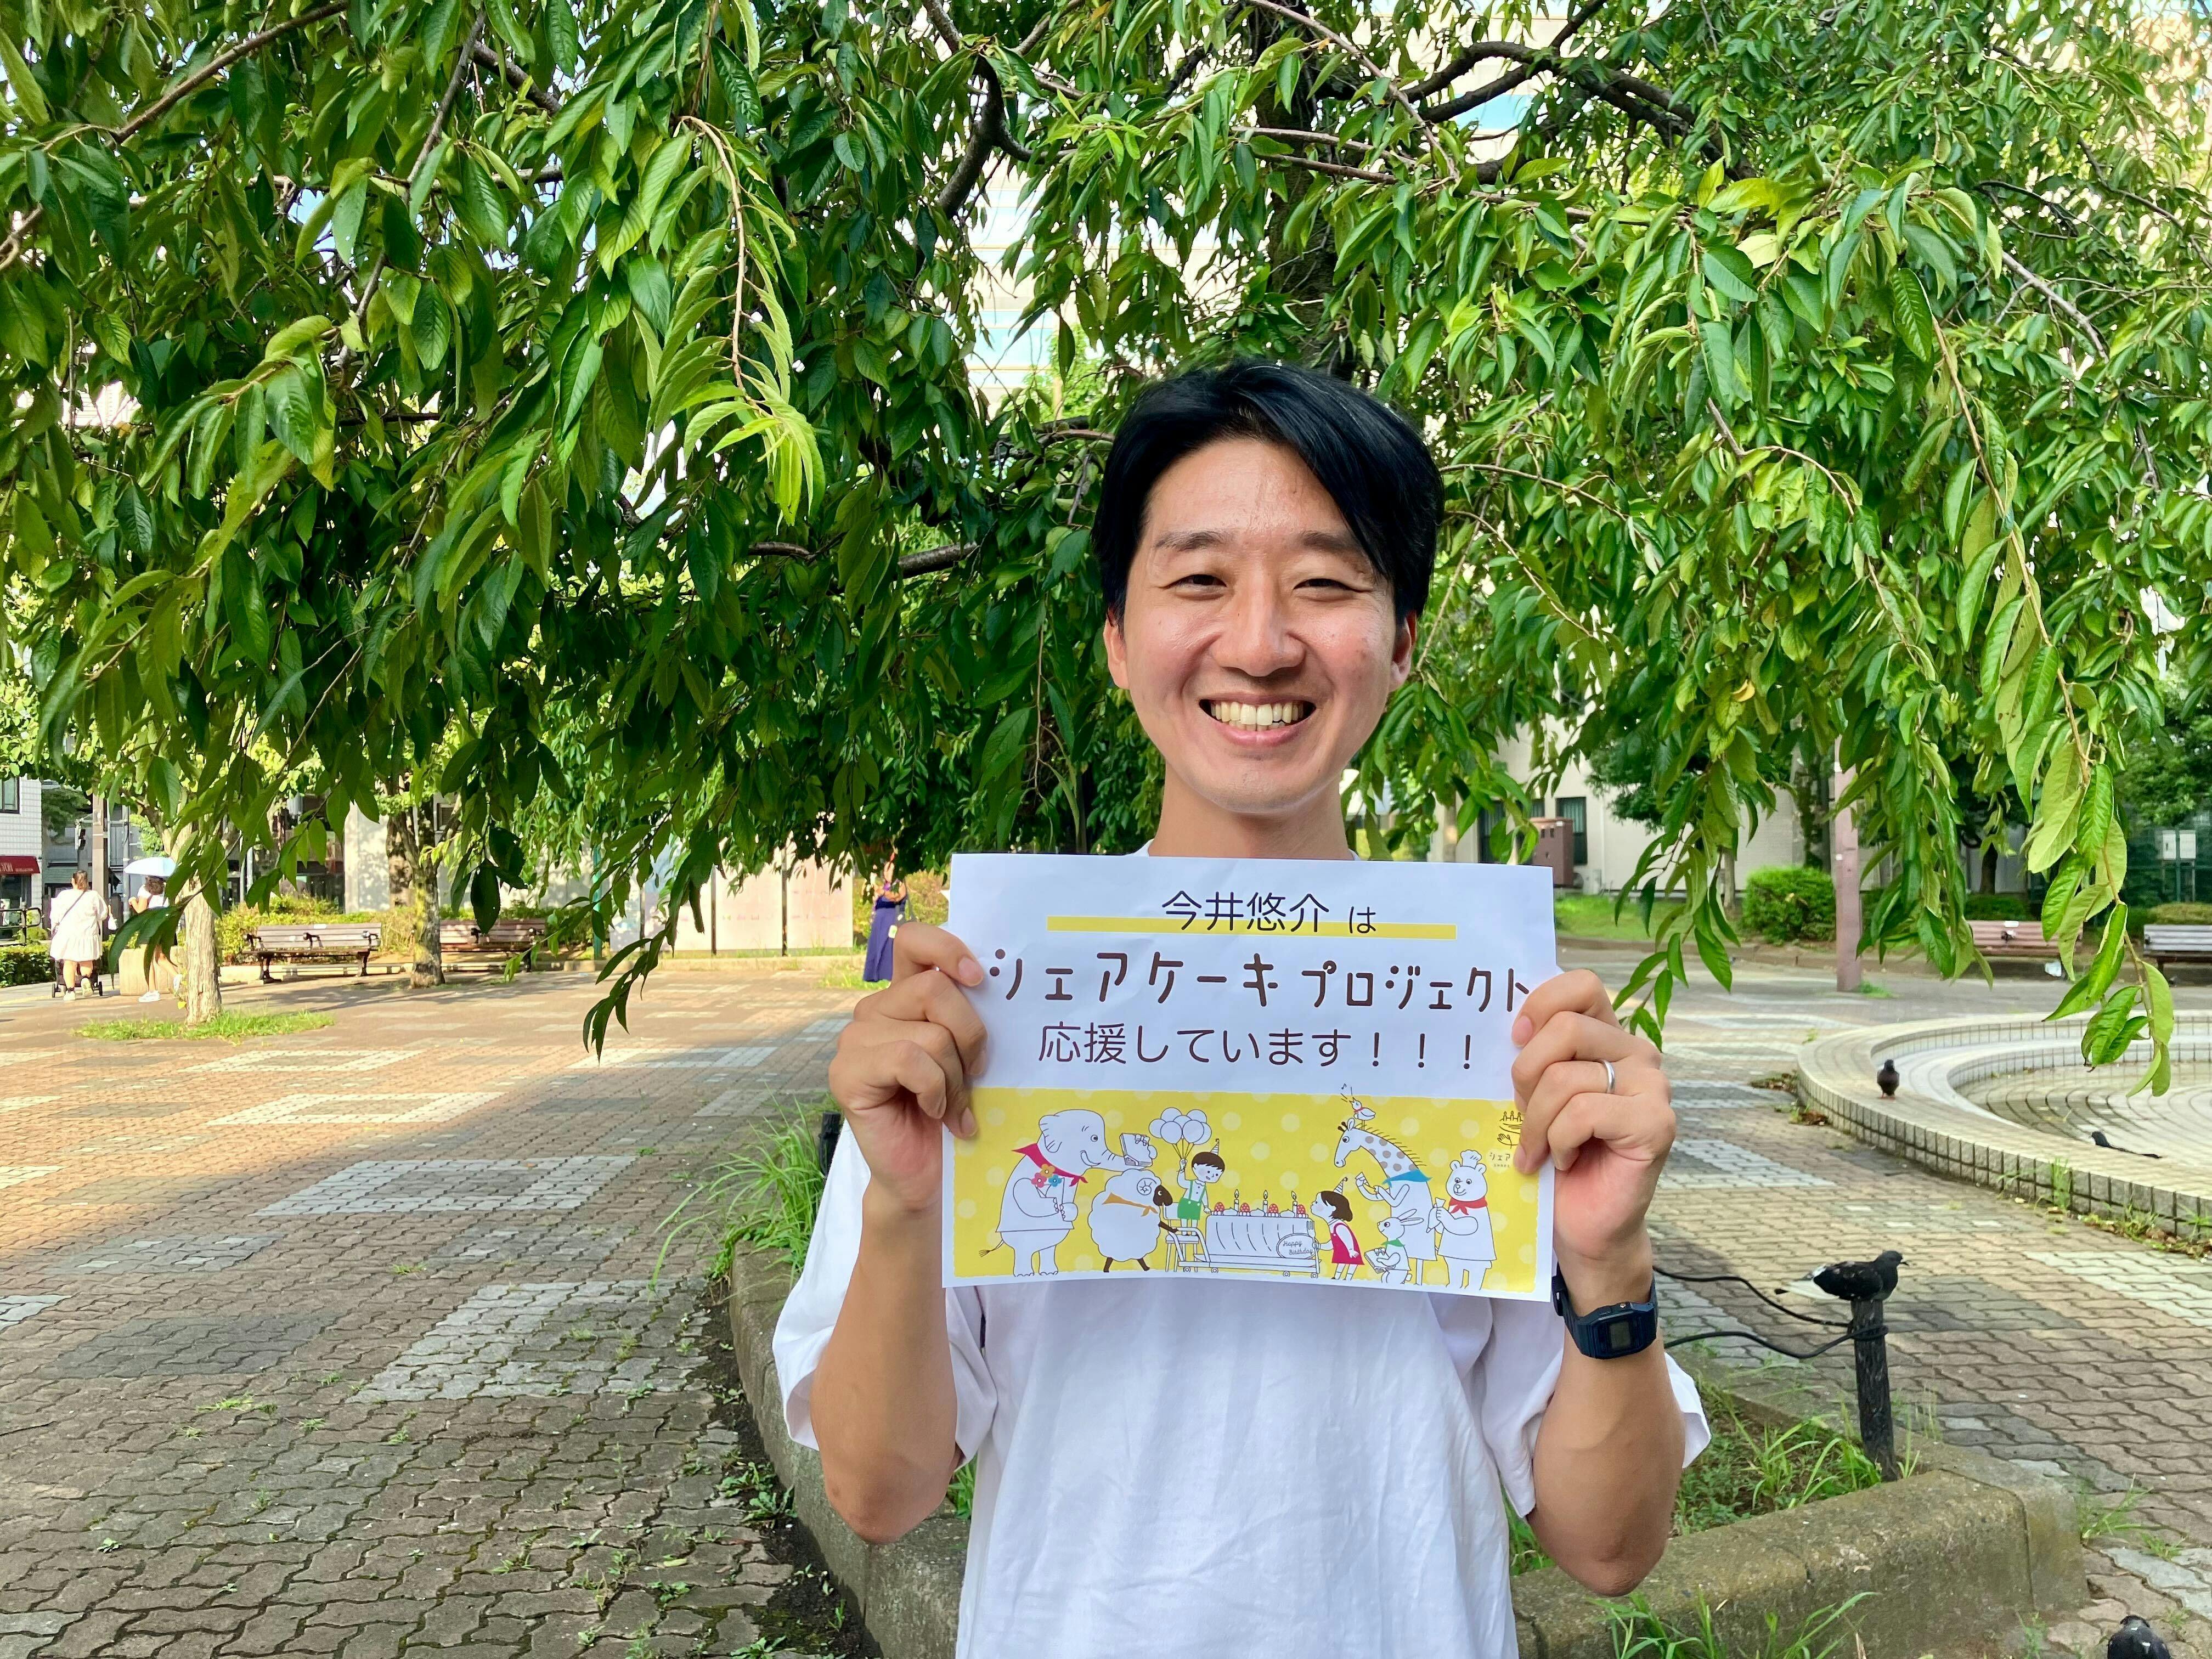 今井悠介 は
シェアケーキプロジェクト
応援しています！！！
シェア
happy
birthday